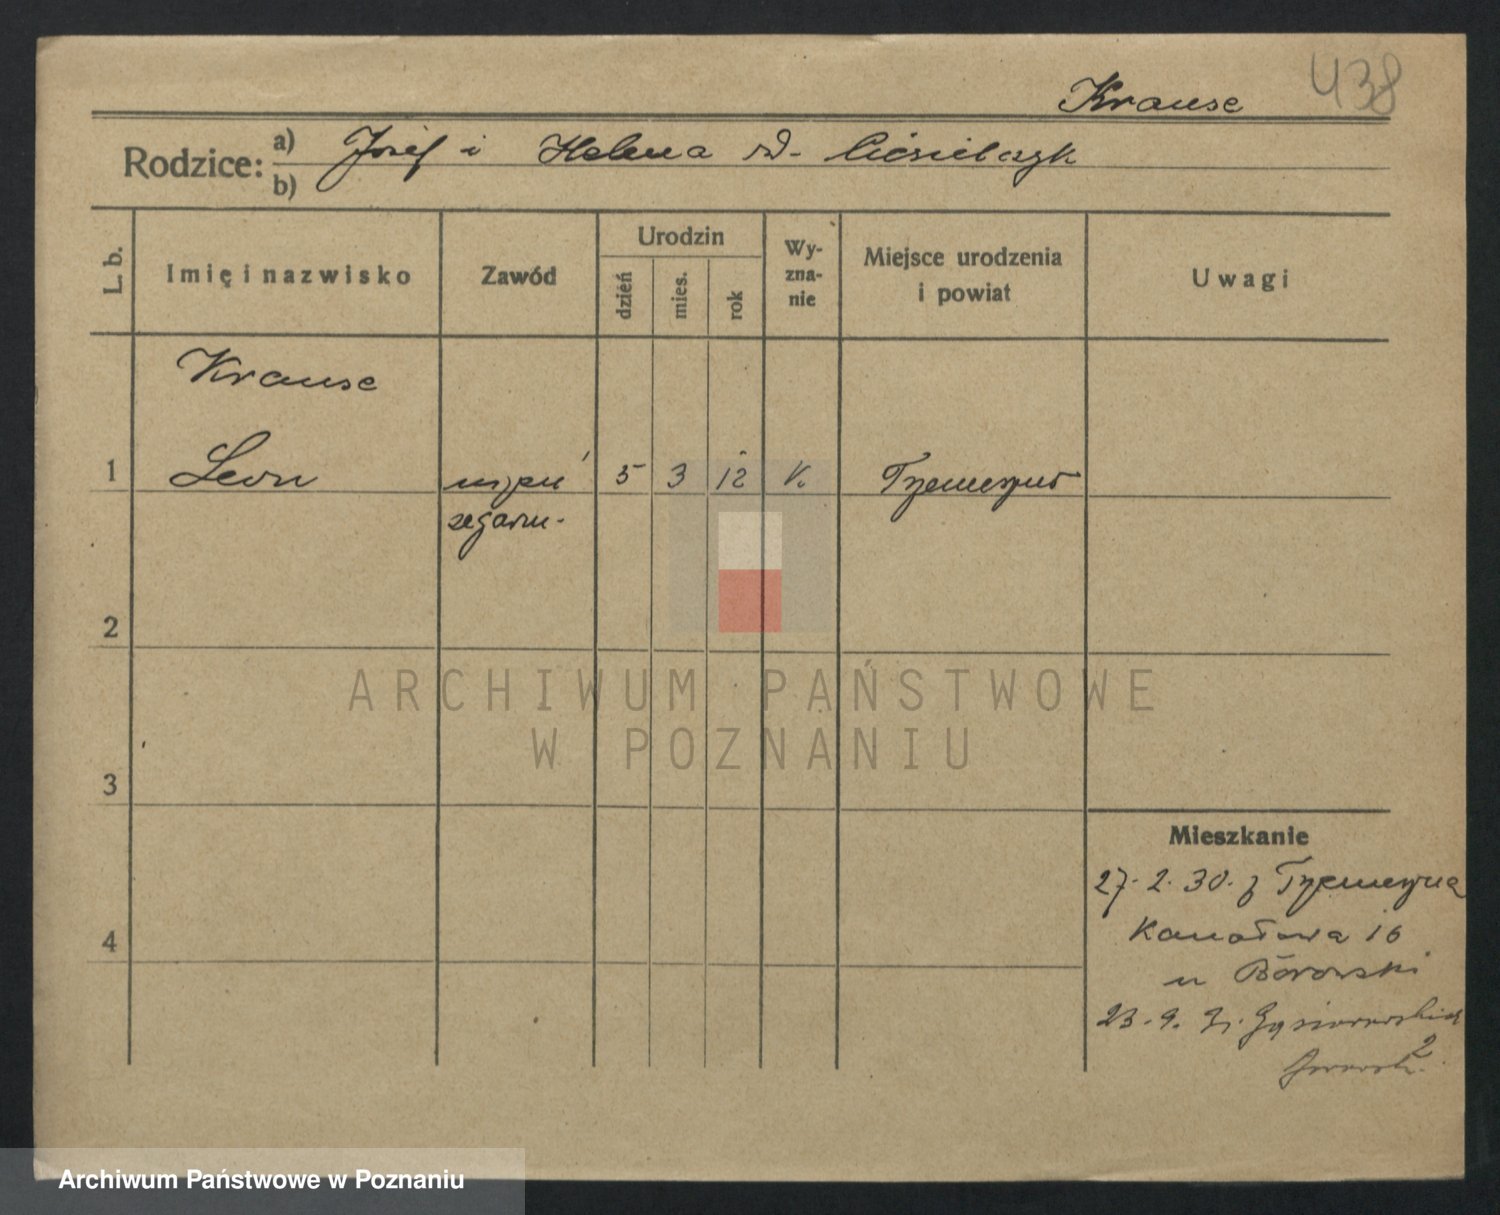 438
Krause
Rodzice: a) Józef i Helena
b)
L. b. Imię i nazwisko Zawód Urodzin dzień mies. rok Wy-zna-nie Miejsce urodzenia i powiat Uwagi
Krause
1 Leon uczeń 5 3 12 k. Trzemeszno
zegarm.
2
ARCHIWUM PAŃSTWOWE
W POZNANIU
3
Mieszkanie
27. 2. 30. z Trzemeszna
4 Kanałowa 16
u Borowski
23. 9. Gąsiorowskich
2
Archiwum Państwowe w Poznaniu